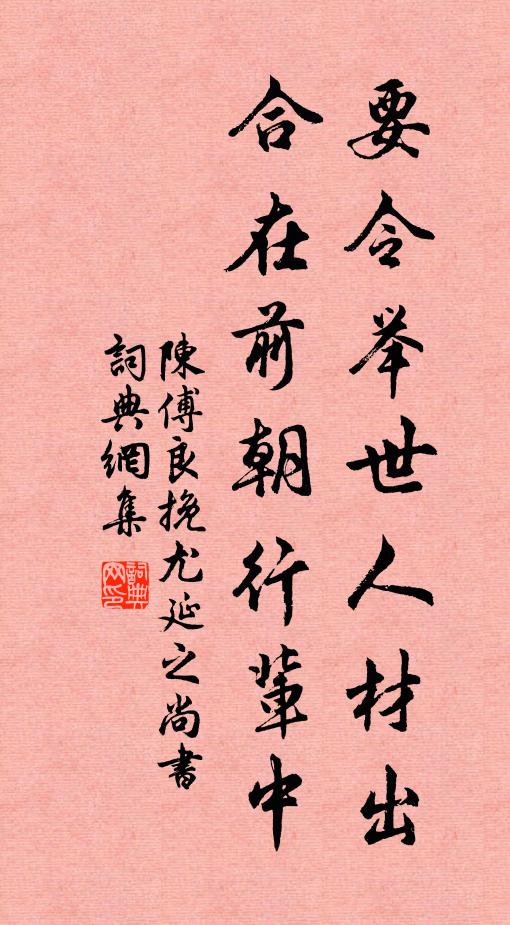 要令举世人材出
合在前朝行輩中
陳傅良挽尤延之尚書
詞典網集
詞典网印